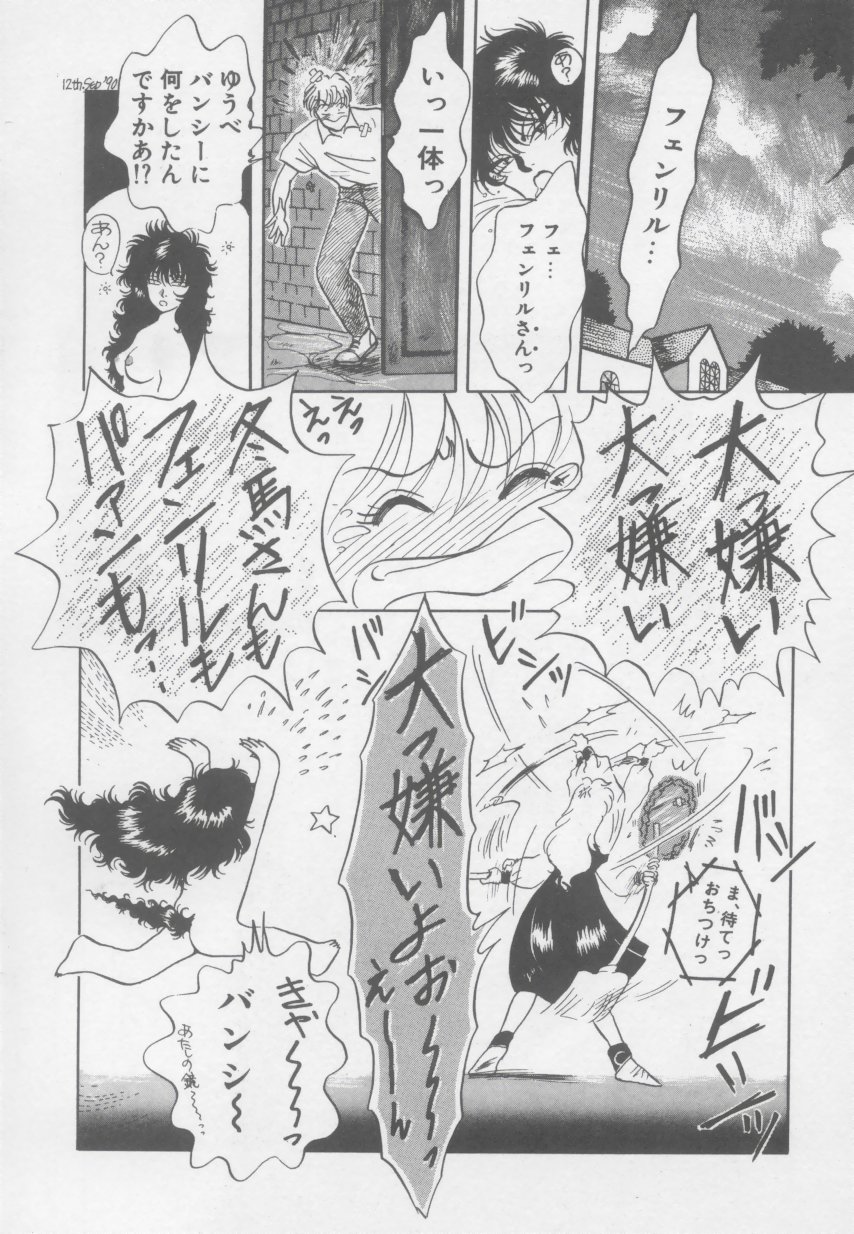 フェンリル…
あ?
フェ…
フェンリルさんっ
いっ一体っ
ゆうべ
バンシーに
何をしたん
ですかあ!?
あん?
12th.Sep '90
大っ嫌い
大っ嫌い
えっ
えっ
冬馬さんも
フェンリルも
パァンも…
ビシッ
バシ
大っ嫌いよお〜〜〜っ
え〜〜ん
バシッ
ま、待てっ
おちつけっ
ビシッ
きゃ〜〜〜っ
バンシ〜
あたしの鏡〜〜っっ